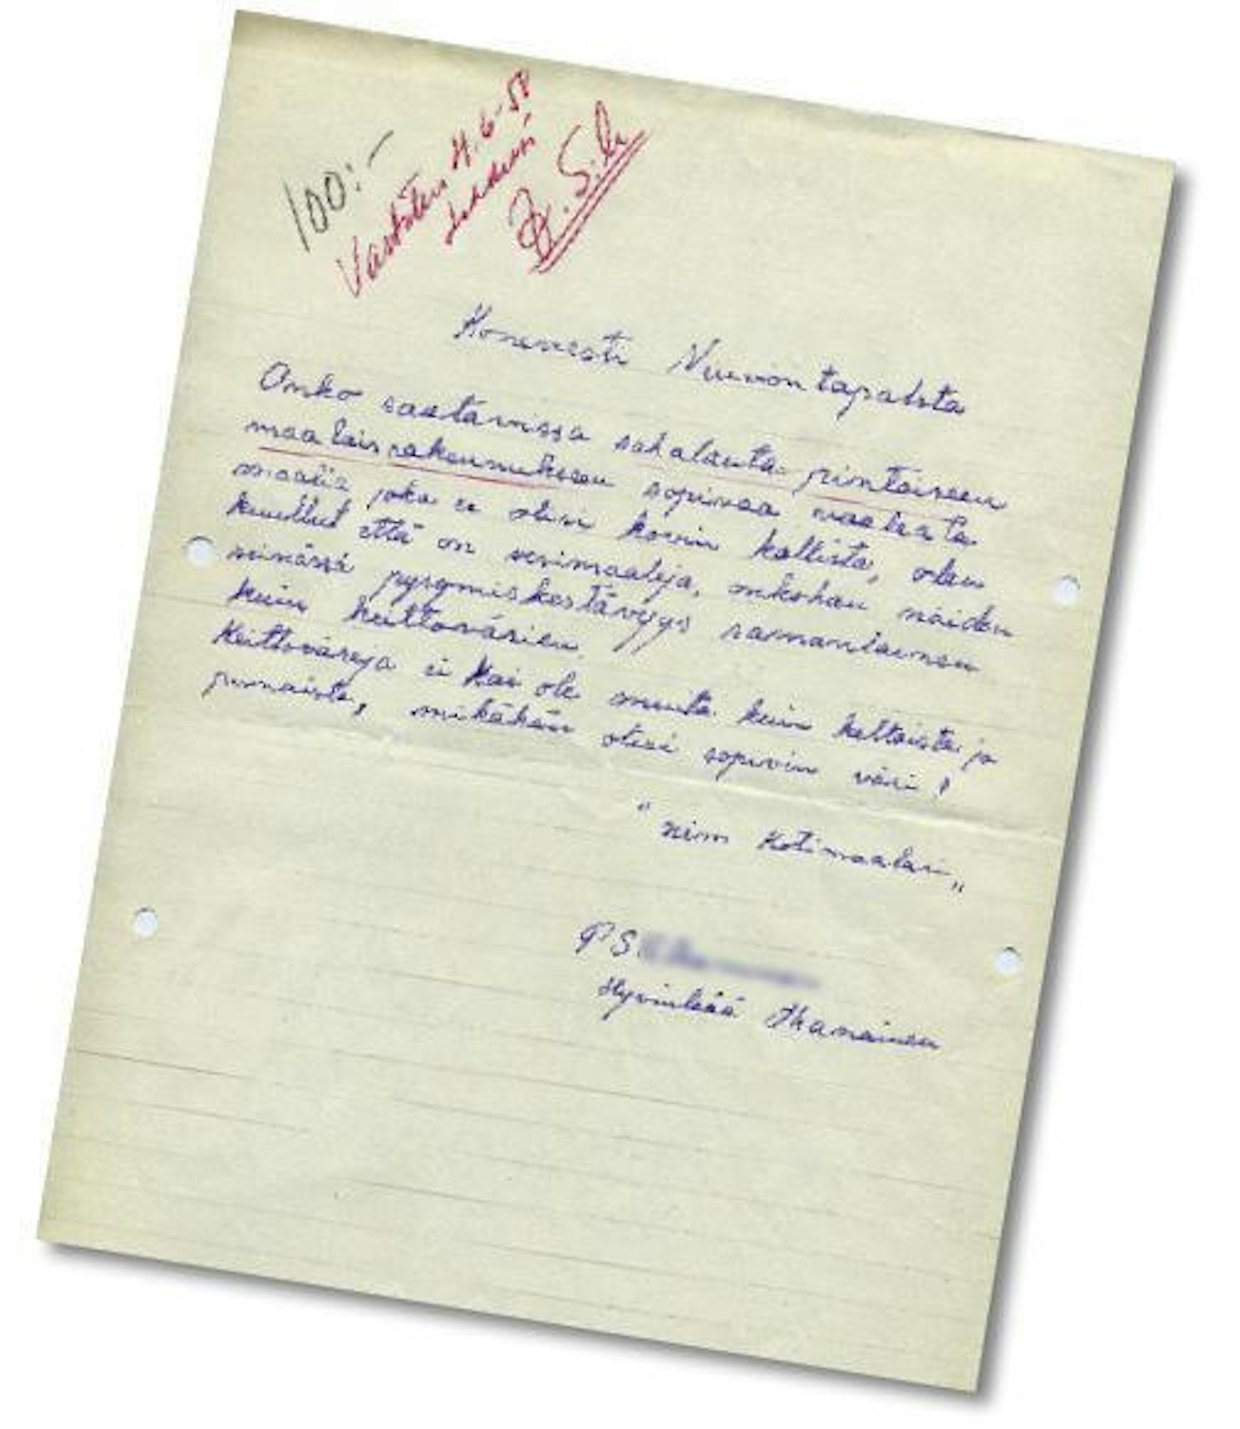 100:-
Vastaten 4.6-58
Koneviesti Nurmontapalsta
Onko saatavissa sahalauta pintaiseen
maalaisrakennukseen sopivaa vaaleata
maalia joka ei olisi kovin kallista, olen
kuullut että on vesimaaleja, onkohan näiden
seinässä pysymiskestävyys samanlainen
kuin keittovärien,
Keittovärejä ei kai ole muuta kuin keltaista ja
punaista, mikähän olisi sopivin väri?
"nim Kotimaalari„
PS
Hyvinkää